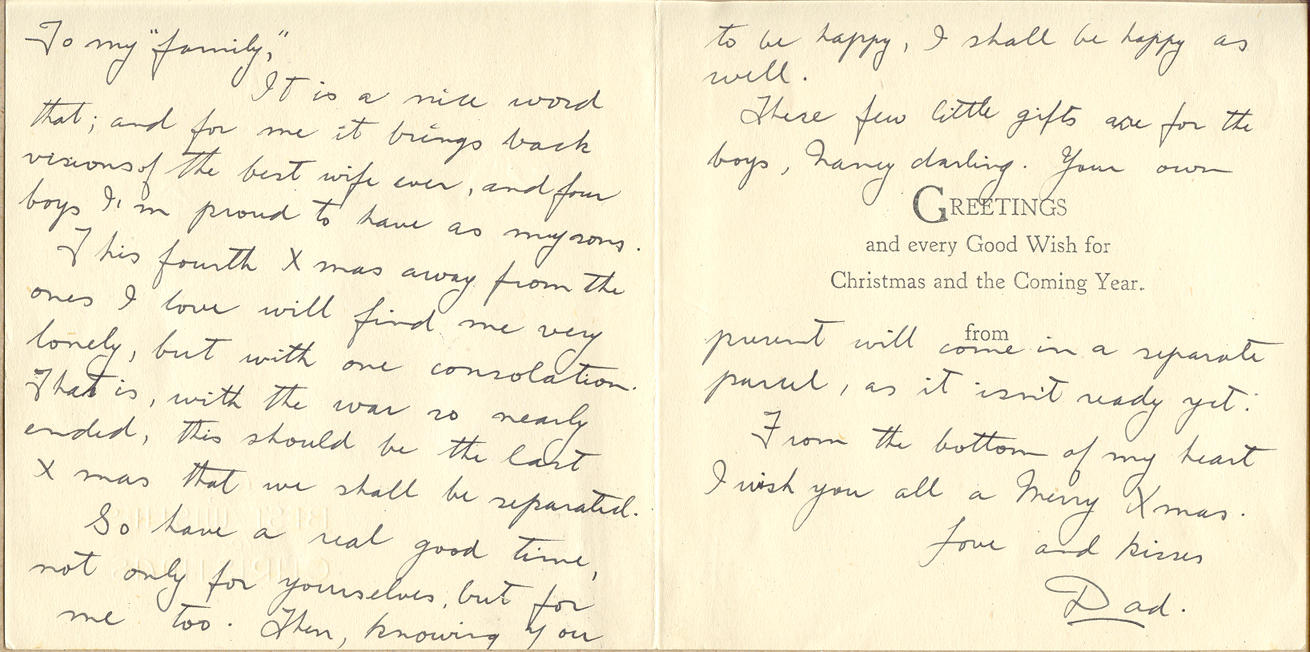 To my "family,"
It is a nice word
that; and for me it brings back
visions of the best wife ever, and four
boys I'm proud to have as my sons.
This fourth Xmas away from the
ones I love will find me very
lonely, but with one consolation.
That is, with the war so nearly
ended, this should be the last
Xmas that we shall be separated.
So have a real good time,
not only for yourselves, but for
me too. Then, knowing you
to be happy, I shall be happy as
well.
These few little gifts are for the
boys, Nancy darling. Your own
GREETINGS
and every Good Wish for
Christmas and the Coming Year.
from
present will come in a separate
parcel, as it isn't ready yet.
From the bottom of my heart
I wish you all a Merry Xmas.
Love and kisses
Dad.